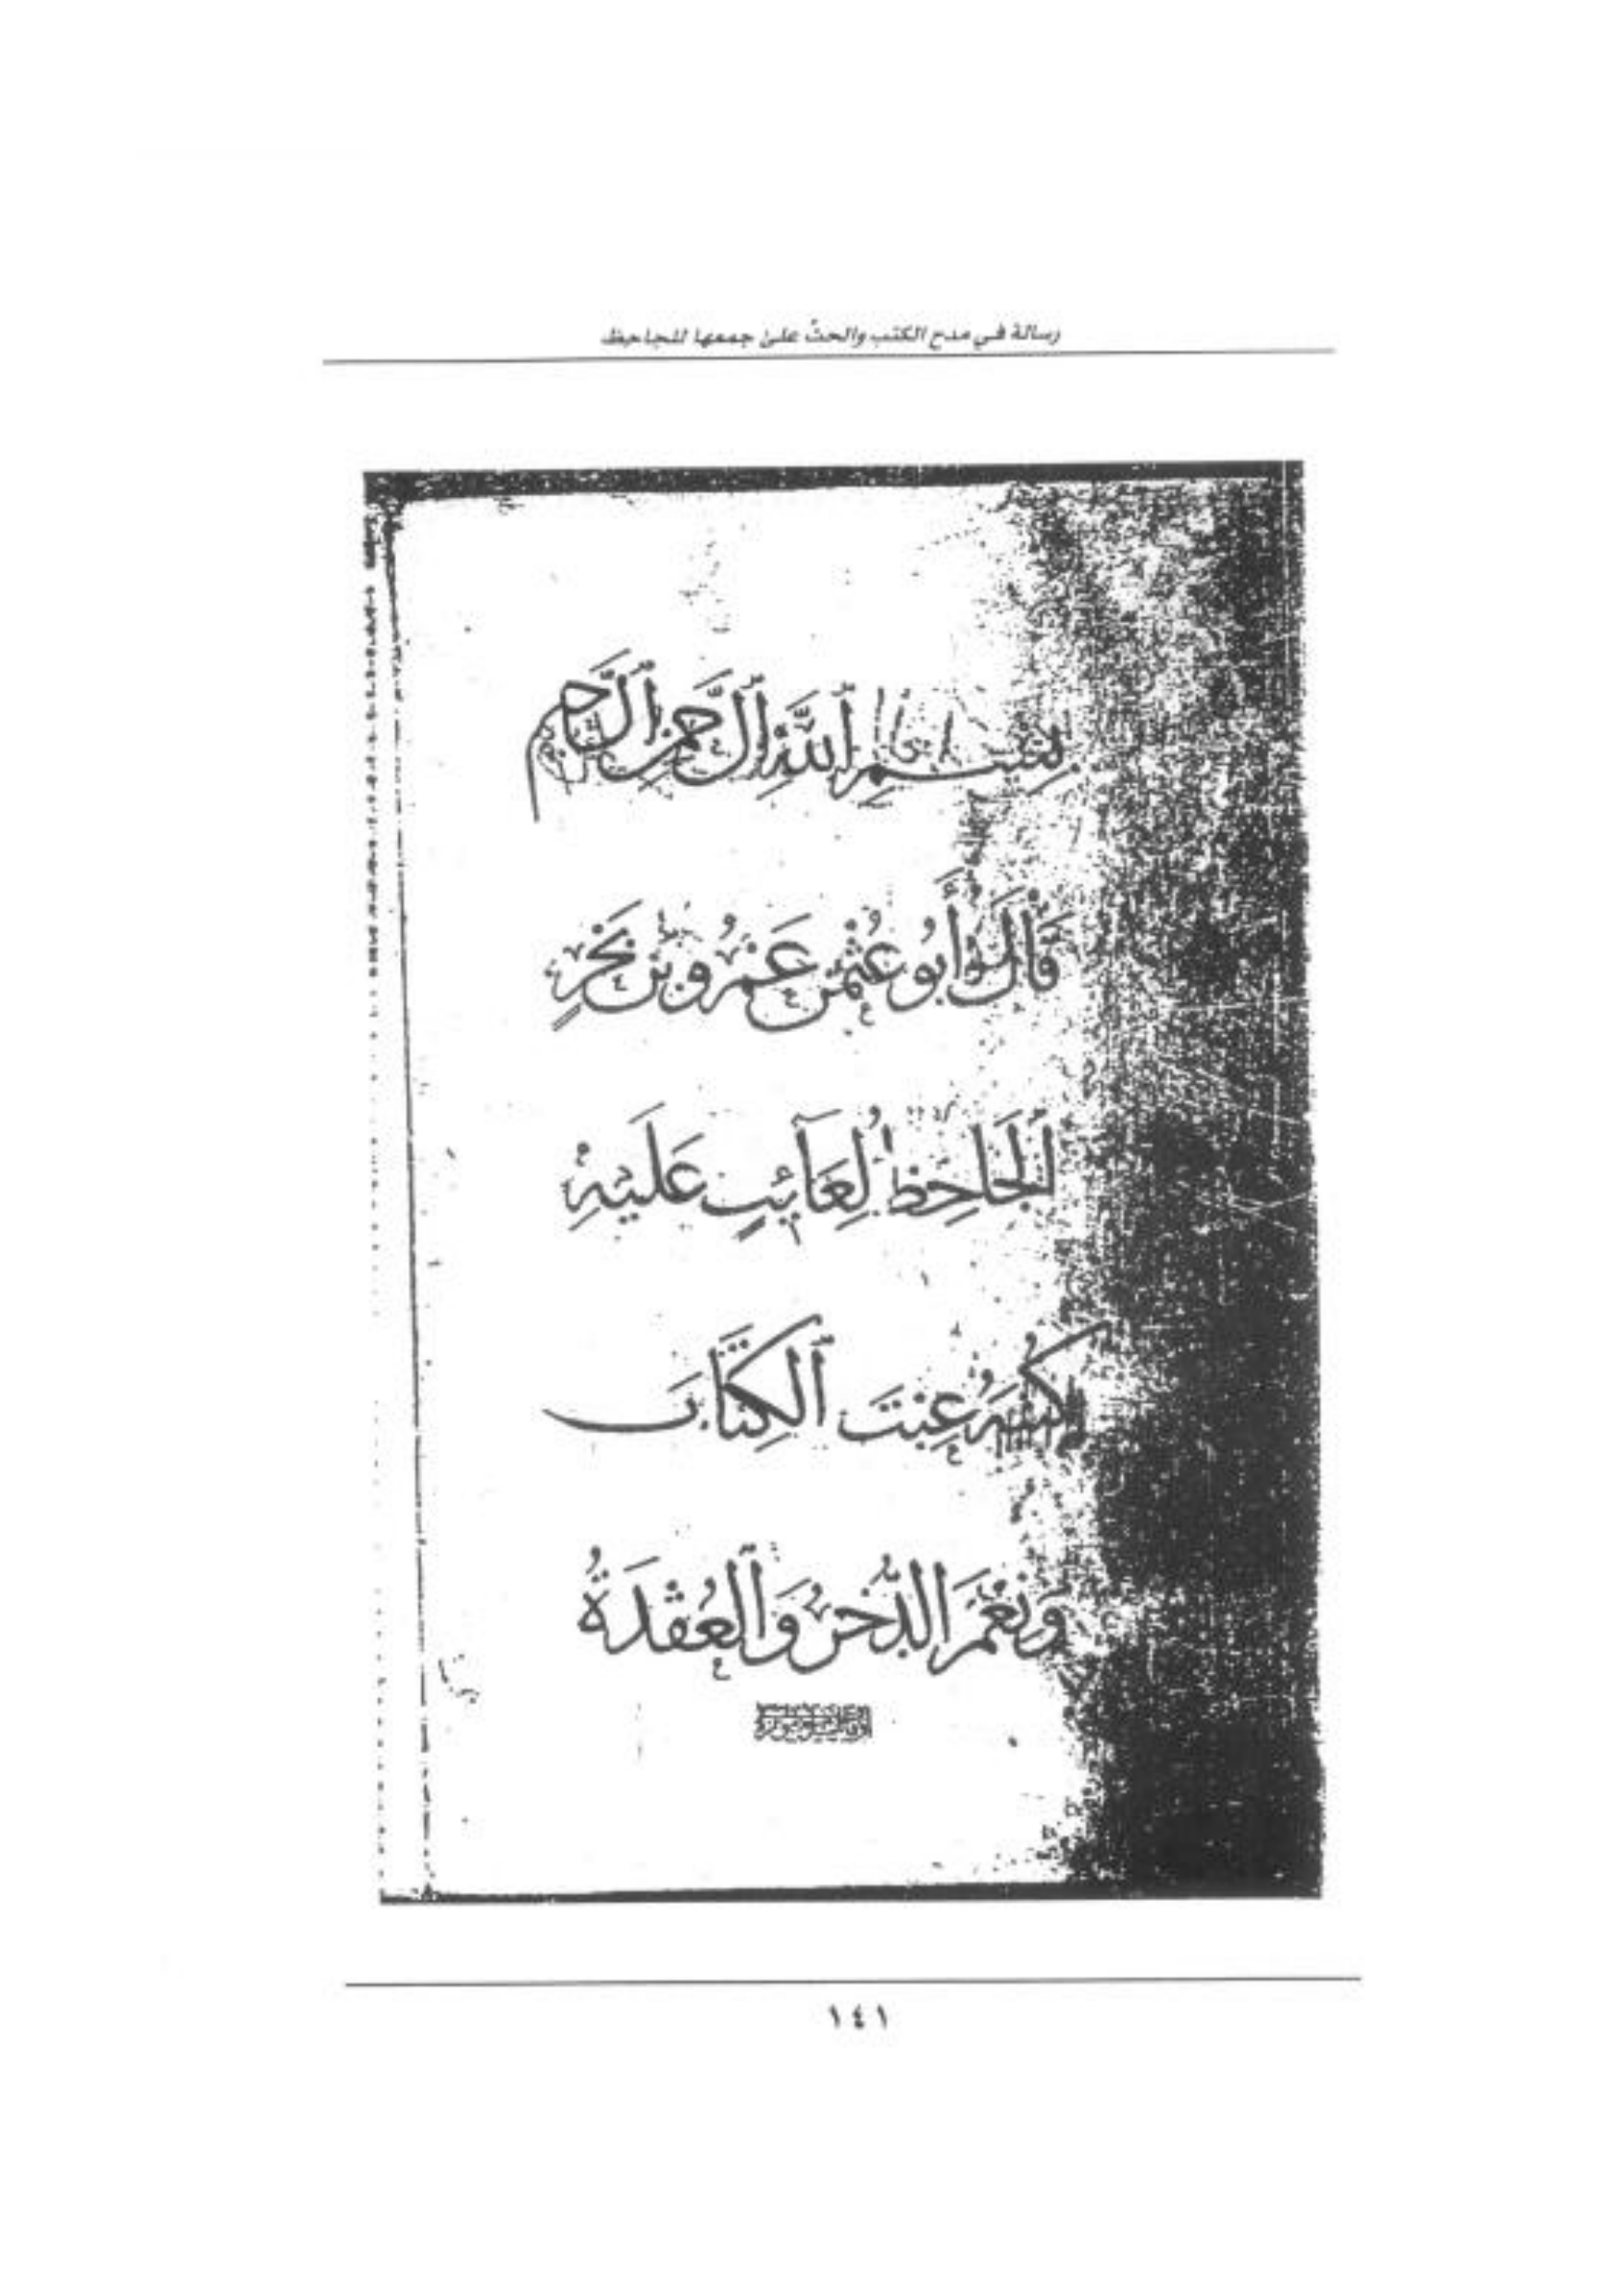 رسالة في مدح الكتب والحثّ على جمعها للجاحظ
بِسْمِ ٱللَّهِ ٱلرَّحْمٰنِ ٱلرَّحِيمِ
قَالَ أَبُو عُثْمٰنَ عَمْرُو بْنُ بَحْرٍ
ٱلْجَاحِظُ لِعَآئِبٍ عَلَيْهِ
كُتُبَهُ عِبْتَ ٱلْكِتَابَ
وَنِعْمَ الذُّخْرُ وَٱلْعُقْدَةُ
١٤١